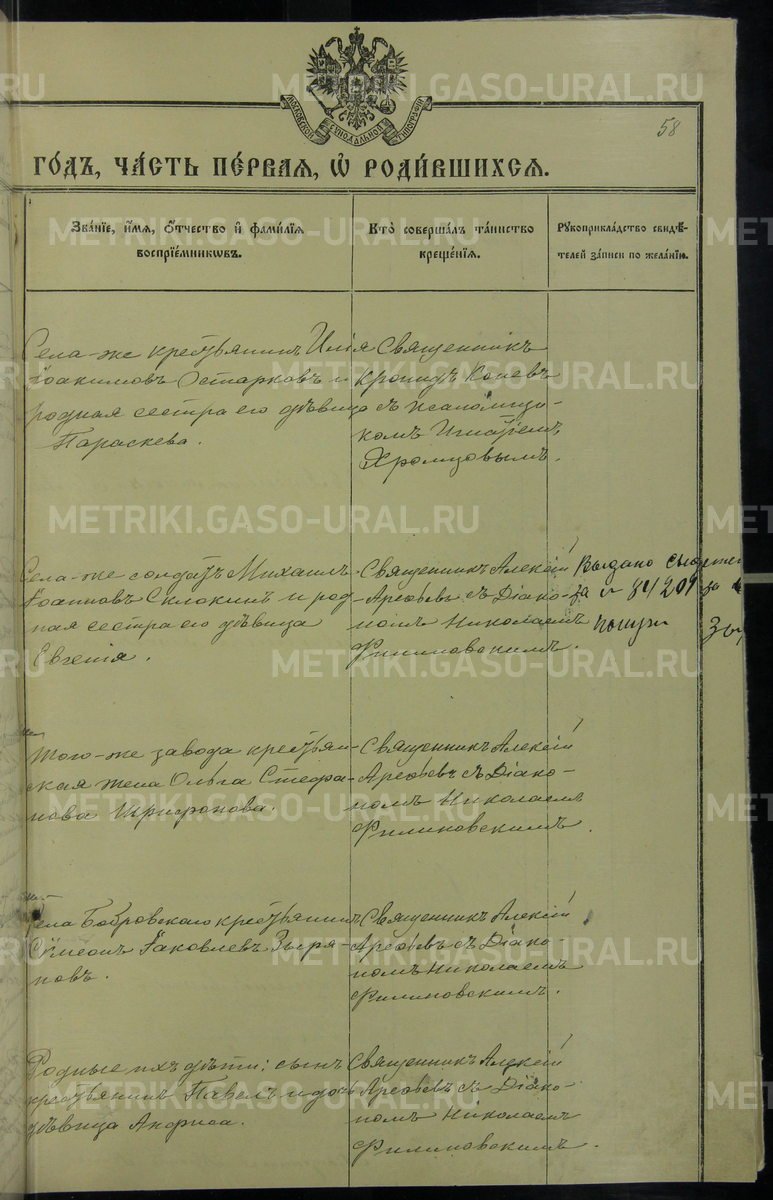 МОСКОВСКОЙ СѴНОДАЛЬНОЙ ТИПОГРАФІИ
58
ГО́ДЪ, ЧА́СТЬ ПЕ́РВАЯ, Ѽ РОДИ́ВШИХСЯ.
Зва́нїе, и҆́мя, ѻ҆́тчество и҆ фами́лїя воспрїе́мникѡвъ.
Кто̀ соверша́лъ та́инство креще́нїя.
Рꙋкоприкла́дство свидѣ́телей за́писи по жела́нїю.
Села-же крестьянинъ Илія
Іоакимовъ Остарковъ и
родная сестра его дѣвица
Параскева.
Священникъ
Кронидъ Коневъ
съ псаломщи-
комъ Игнатіемъ
Хромцовымъ.
Села-же солдатъ Михаилъ
Іоанновъ Склокинъ и род
ная сестра его дѣвица
Евгенія.
Священникъ Алексій
Арефьевъ съ Діако-
номъ Николаемъ
Филиновскимъ.
Выдано
за № 84 209 за
Того-же завода крестьян-
ская жена Ольга Стефа-
нова
Священникъ Алексій
Арефьевъ съ Діако-
номъ Николаемъ
Филиновскимъ.
Села Бобровскаго крестьянинъ
Сѵмеонъ Іаковлевъ Зыря-
новъ.
Священникъ Алексій
Арефьевъ съ Діако
номъ Николаемъ
Филиновскимъ.
Родные ихъ дѣти: сынъ
крестьянинъ Павелъ и дочь
дѣвица Анфиса.
Священникъ Алексій
Арефьевъ съ Діако-
номъ Николаемъ
Филиновскимъ.
METRIKI.GASO-URAL.RU